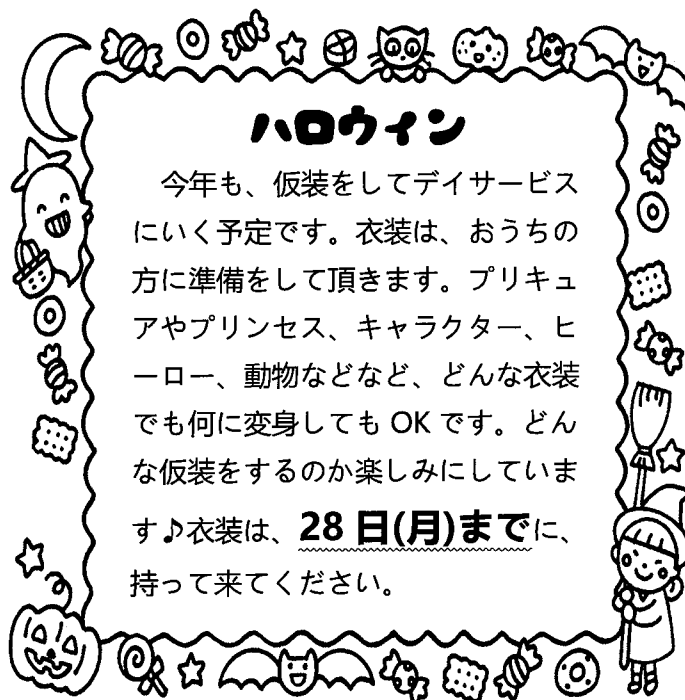 ハロウィン
　今年も、仮装をしてデイサービス
にいく予定です。衣装は、おうちの
方に準備をして頂きます。プリキュ
アやプリンセス、キャラクター、ヒ
ーロー、動物などなど、どんな衣装
でも何に変身しても OK です。どん
な仮装をするのか楽しみにしていま
す♪衣装は、28 日(月)までに、
持って来てください。